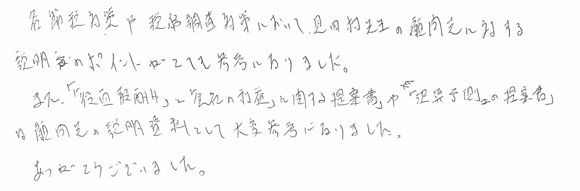 各節税対策や税務調査対策において、見田村先生の顧問先に対する
説明等のポイントがとても参考になりました。
また、「に関する提案書」や「の提案書」
は顧問先の説明資料として大変参考になりました。
ありがとうございました。